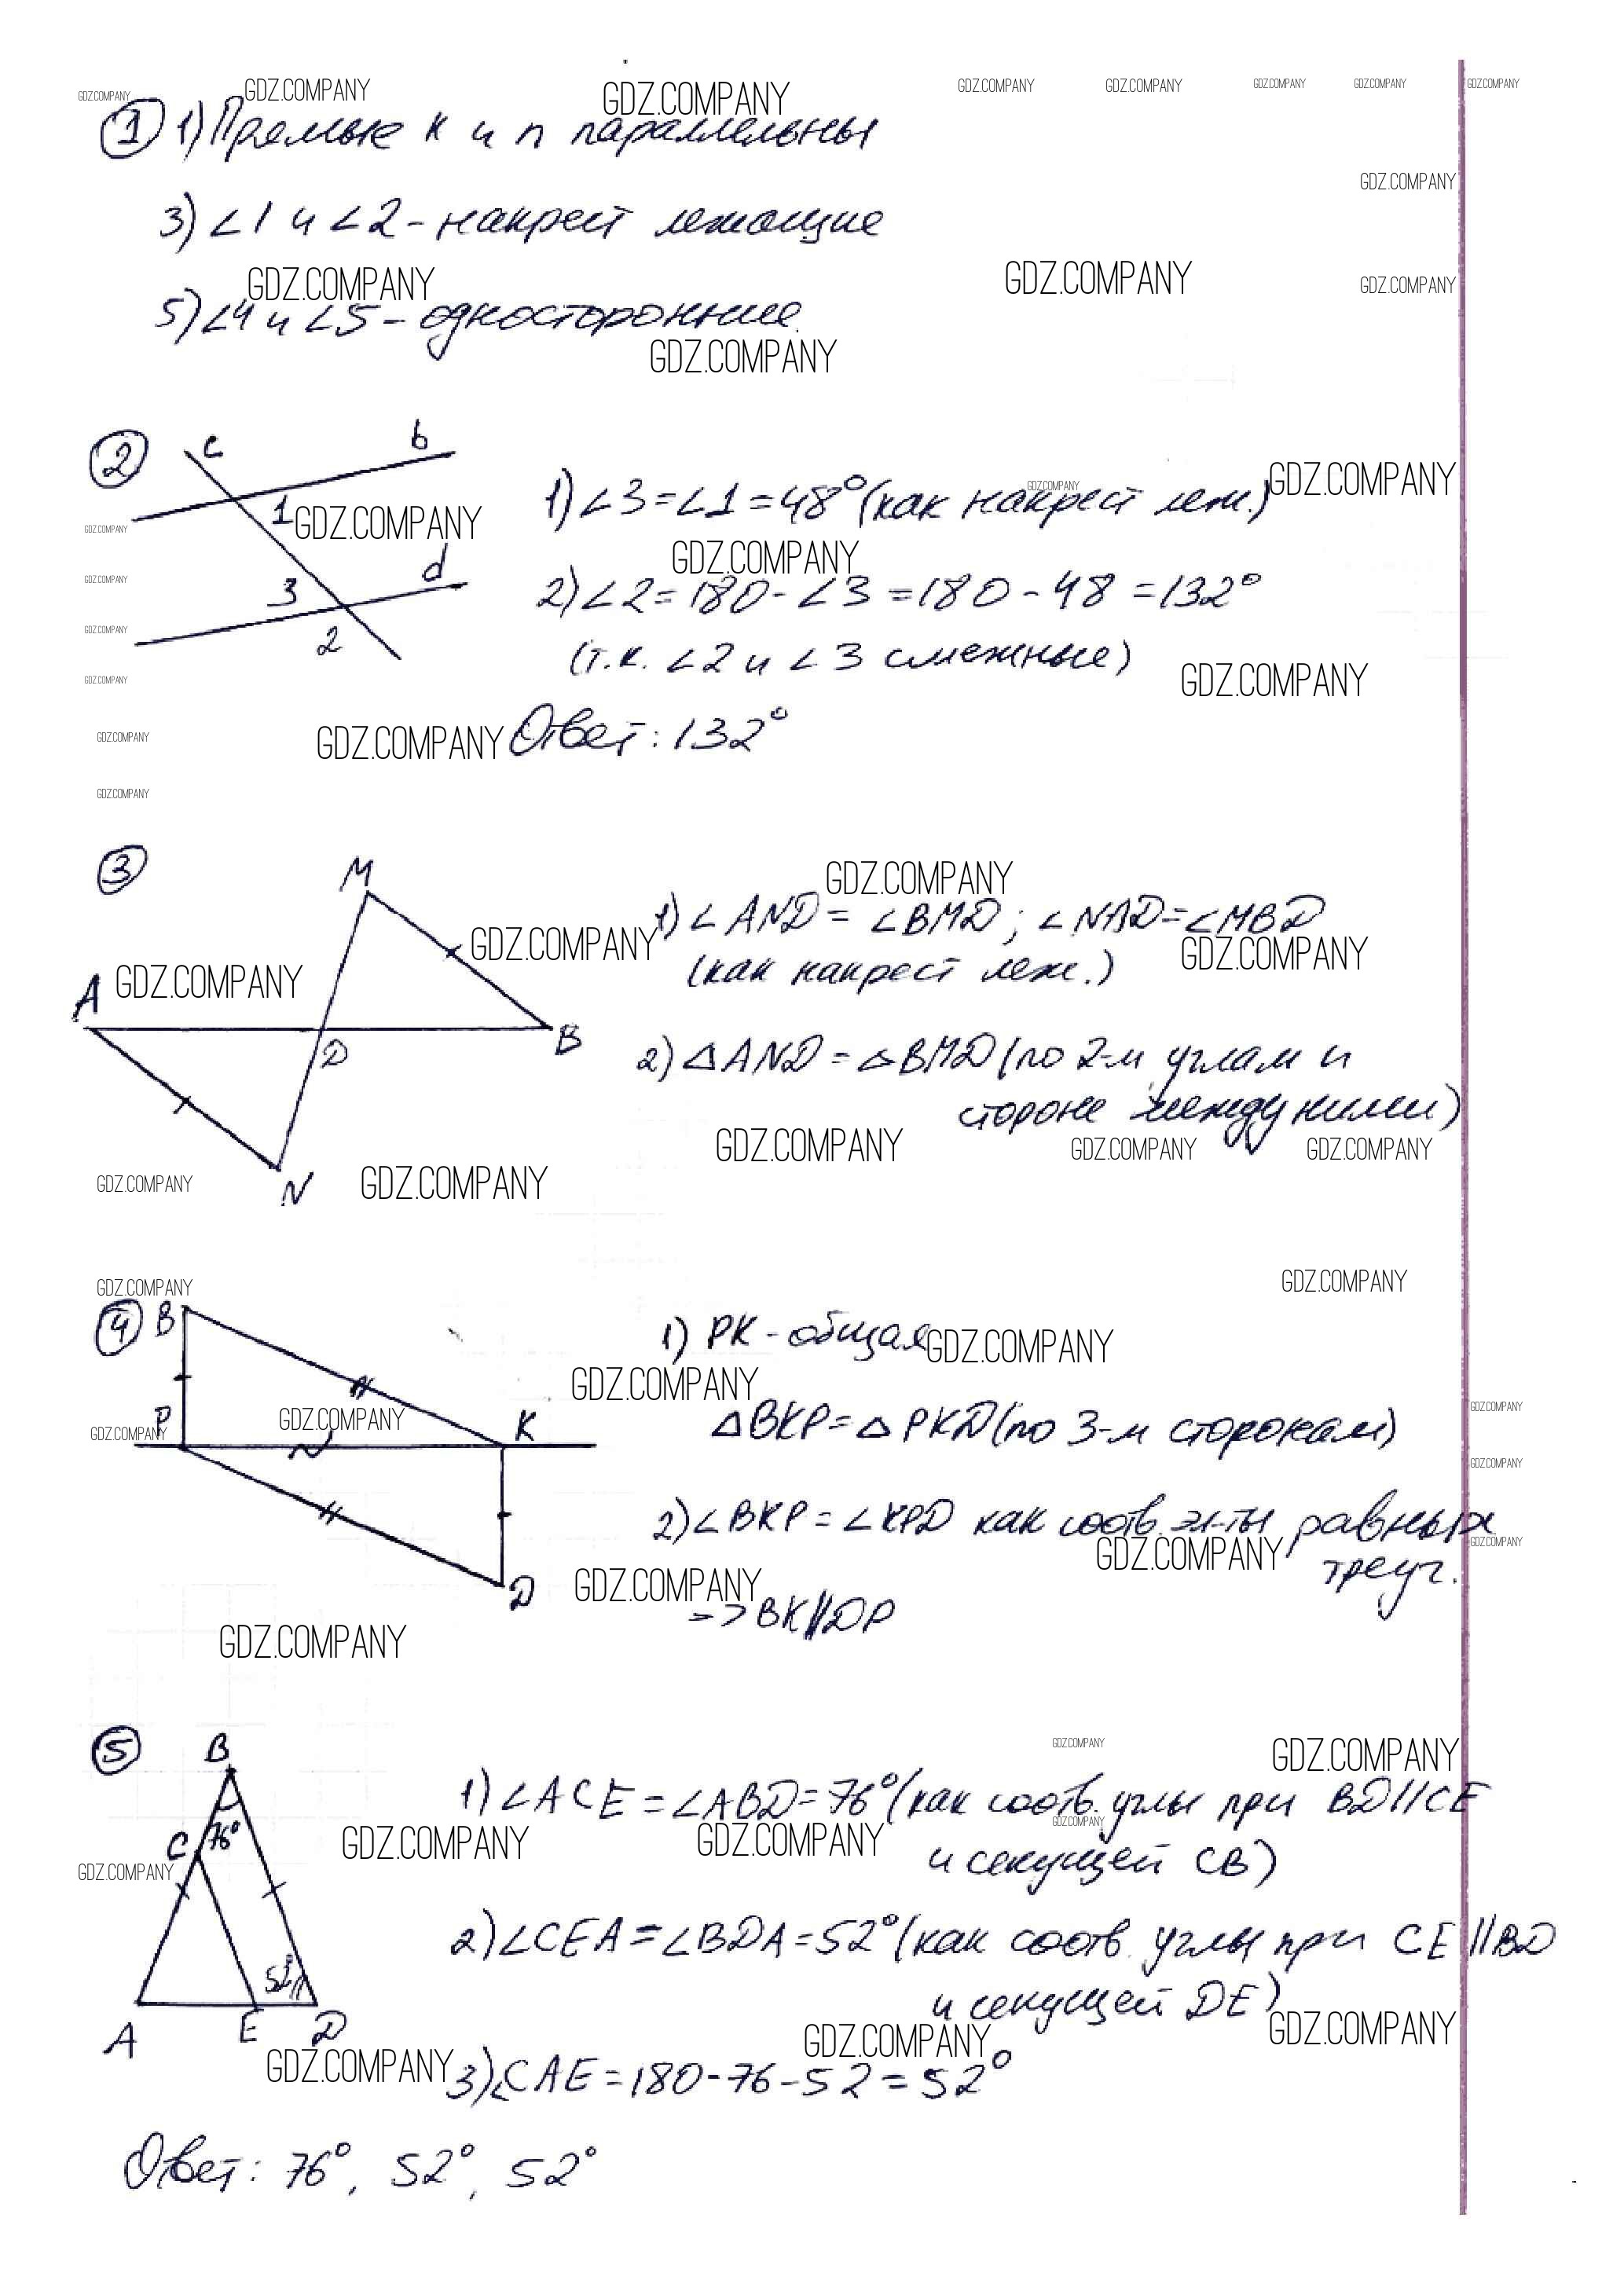 GDZ.COMPANY GDZ.COMPANY GDZ.COMPANY GDZ.COMPANY GDZ.COMPANY GDZ.COMPANY GDZ.COMPANY GDZ.COMPANY
1 1) Прямые k и n параллельны
GDZ.COMPANY
3) ∠1 и ∠2 - накрест лежащие
GDZ.COMPANY GDZ.COMPANY GDZ.COMPANY
5) ∠4 и ∠5 - односторонние.
GDZ.COMPANY
2 c b
1) ∠3 = ∠1 = 48° (как накрест леж.) GDZ.COMPANY GDZ.COMPANY
1 GDZ.COMPANY
GDZ.COMPANY
GDZ.COMPANY
GDZ.COMPANY d
3 2) ∠2 = 180 - ∠3 = 180 - 48 = 132°
GDZ.COMPANY
2 (т.к. ∠2 и ∠3 смежные)
GDZ.COMPANY GDZ.COMPANY
GDZ.COMPANY GDZ.COMPANY Ответ: 132°
GDZ.COMPANY
3 M GDZ.COMPANY
1) ∠AND = ∠BMD; ∠NAD = ∠MBD
GDZ.COMPANY GDZ.COMPANY
A GDZ.COMPANY (как накрест леж.)
D B 2) △AND = △BMD (по 2-м углам и
стороне между ними)
GDZ.COMPANY GDZ.COMPANY GDZ.COMPANY
GDZ.COMPANY GDZ.COMPANY
N
GDZ.COMPANY GDZ.COMPANY
4 B 1) PK - общая GDZ.COMPANY
GDZ.COMPANY
P GDZ.COMPANY K △BKP = △PKD (по 3-м сторонам) GDZ.COMPANY
GDZ.COMPANY
GDZ.COMPANY
2) ∠BKP = ∠KPD как соотв. эл-ты равных
GDZ.COMPANY GDZ.COMPANY
треуг.
D GDZ.COMPANY
=> BK||DP
GDZ.COMPANY
5 B GDZ.COMPANY GDZ.COMPANY
1) ∠ACE = ∠ABD = 76° (как соотв. углы при BD//CE
GDZ.COMPANY
C 76° GDZ.COMPANY GDZ.COMPANY
GDZ.COMPANY и секущей CB)
2) ∠CEA = ∠BDA = 52° (как соотв. углы при CE||BD
52° и секущей DE)
A E D GDZ.COMPANY GDZ.COMPANY
GDZ.COMPANY
3) ∠CAE = 180 - 76 - 52 = 52°
Ответ: 76°, 52°, 52°